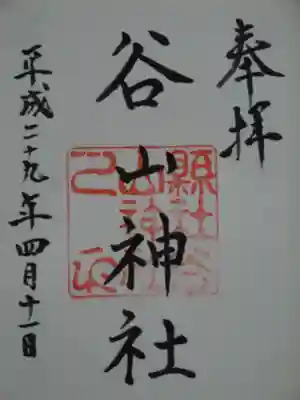 奉拝
谷山神社
平成二十九年四月十一日